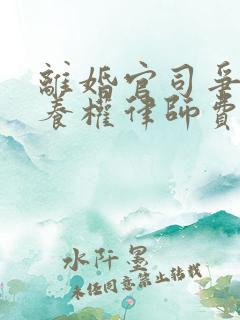 離婚官司爭
養權律師費
水阡墨
未經同意禁止轉載